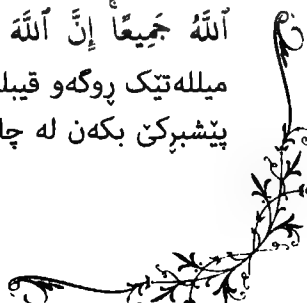 ٱللَّهُ جَمِيعًاۚ إِنَّ ٱللَّهَ
میللەتێک ڕوگەو قیبلە
پێشبڕکێ بکەن لە چا